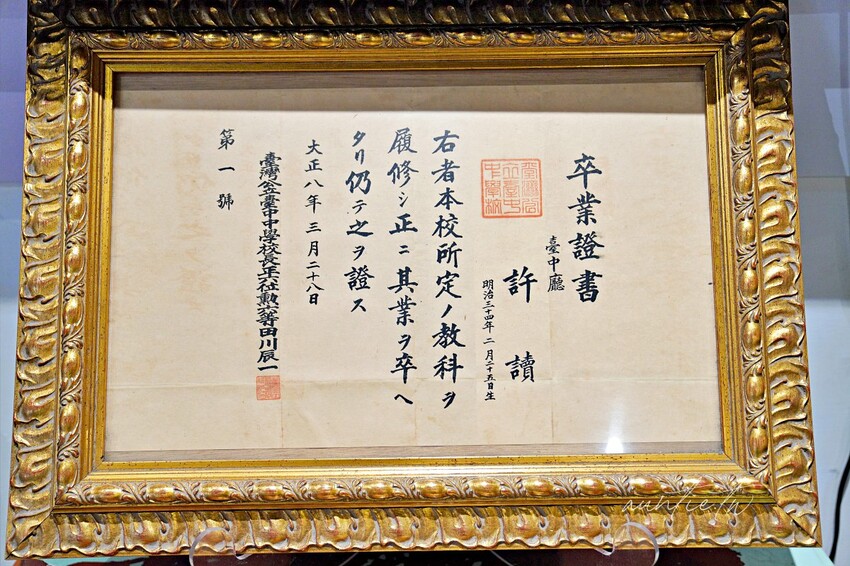 卒業證書
臺中廳
許讀
明治三十四年二月二十五日生
右者本校所定ノ教科ヲ
履修シ正ニ其業ヲ卒ヘ
タリ仍テ之ヲ證ス
大正八年三月二十八日
臺灣公立臺中中學校長正六社勲六等田川辰一
第一號